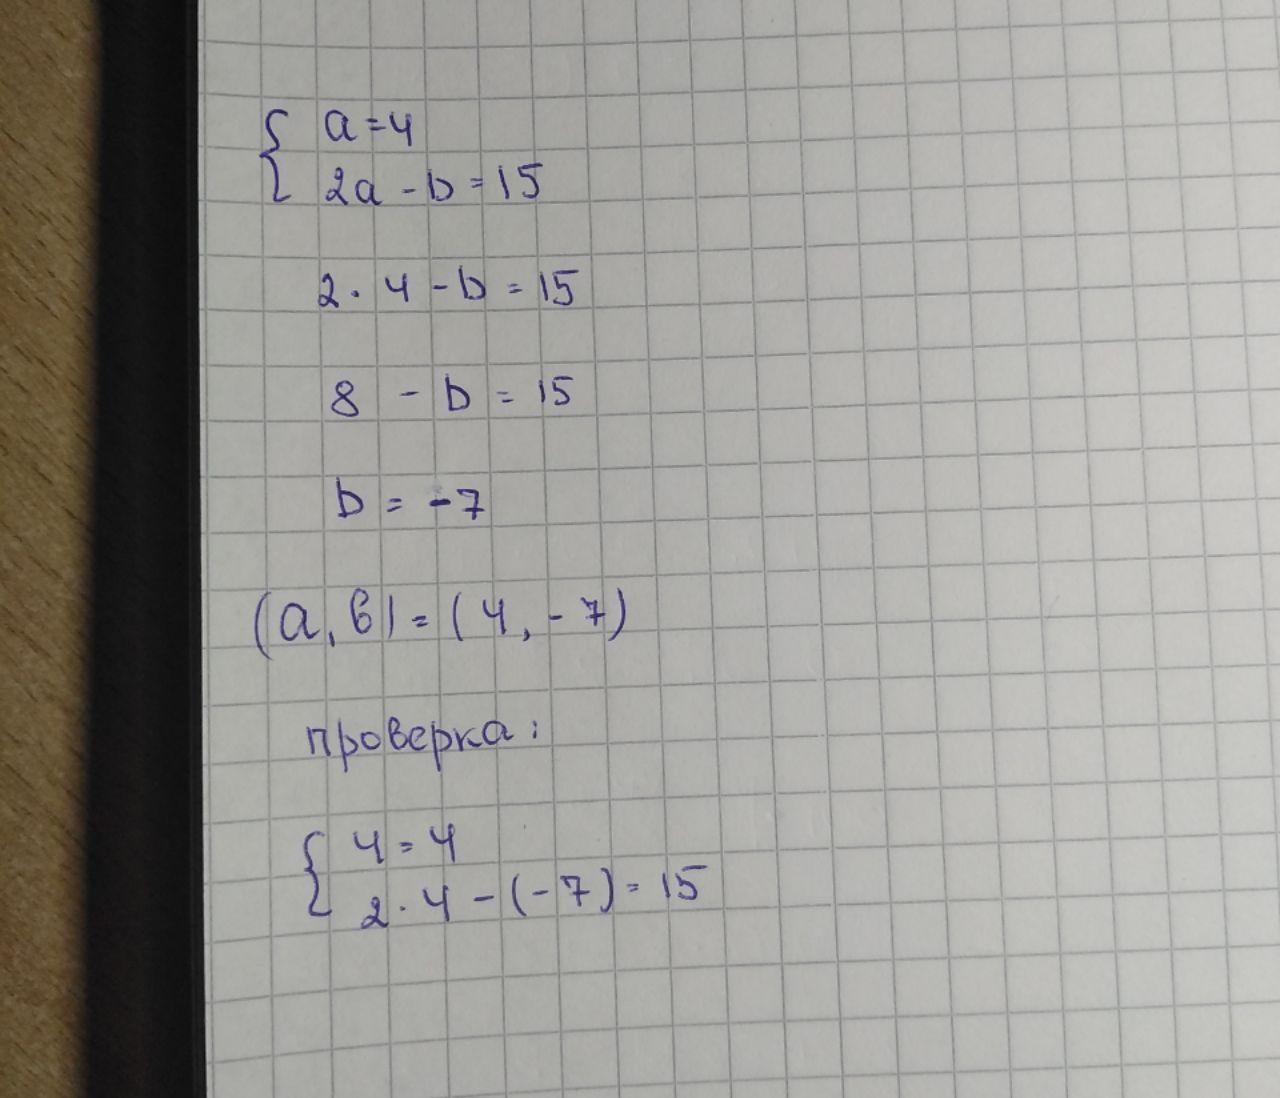 { a=4
2a - b = 15
2 · 4 - b = 15
8 - b = 15
b = -7
(a, b) = (4, -7)
проверка:
{ 4 = 4
2 · 4 - (-7) = 15